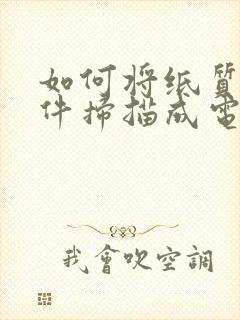 如何将纸質
件掃描成電
我會吹空調